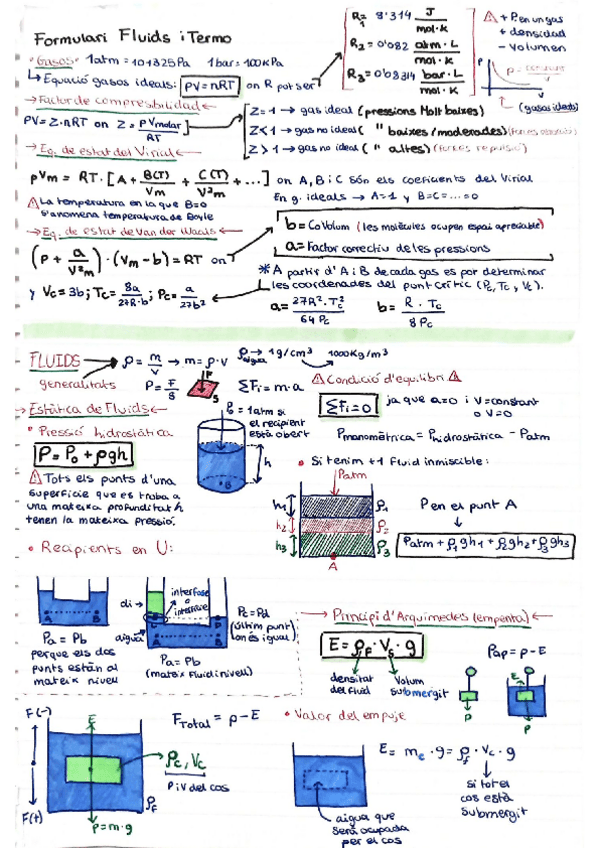 Formulari Fluids i Termo
R1 = 8'314 J/mol·K
R2 = 0'082 atm·L/mol·K
R3 = 0'08314 bar·L/mol·K
⚠ + P en un gas
+ densidad
- Volumen
(gasos ideals)
· Gasos: 1atm = 101325Pa 1bar = 100KPa
↳ Equació gasos ideals: PV = nRT on R pot ser
→ Factor de compresibilidad ←
PV = Z·nRT on Z = P Vmolar/RT
Z = 1 → gas ideal (pressions Molt baixes)
Z < 1 → gas no ideal ( " baixes/moderades)
Z > 1 → gas no ideal ( " altes) (forces repulsió)
→ Eq. de estat del Virial
PVm = RT · [A + B(T)/Vm + C(T)/V²m + ...] on A, B i C són els coeficients del Virial
En g. ideals → A=1 y B=C=...=0
⚠ La temperatura en la que B=0
s'anomena temperatura de Boyle
→ Eq. de estat de Van der Waals
b = CoVolum (les molècules ocupen espai apreciable)
a = Factor correctiu de les pressions
(P + a/V²m) · (Vm - b) = RT on
* A partir d' A i B de cada gas es por determinar
les coordenades del punt Crític (Pc, Tc, Vc).
y Vc = 3b; Tc = 8a/27R·b; Pc = a/27b²
a = 27R²·Tc²/64Pc b = R·Tc/8Pc
FLUIDS → ρ = m/V → m = ρ·V ρaigua → 1g/cm³ 1000Kg/m³
generalitats P = F/S F S ΣFi = m·a ⚠ Condició d'equilibri ⚠
ΣFi = 0 ja que a=0 i V=constant
o V=0
→ Estàtica de Fluids ←
P0 = 1atm si
el recipient
està obert
• Pressió hidrostàtica
P = P0 + ρgh
h
B
Pmanomètrica = Phidrostàtica - Patm
⚠ Tots els punts d'una
superfície que es troba a
una mateixa profunditat h
tenen la mateixa pressió.
• Si tenim +1 Fluid inmiscible:
Patm
h1 ρ1
h2 ρ2
h3 ρ3
A
P en el punt A
Patm + ρ1gh1 + ρ2gh2 + ρ3gh3
• Recipients en U:
A B
Pa = Pb
perque els dos
punts están al
mateix nivell
oli
interfase
o
interfície
C D
aigua
A B
Pc = Pd
(últim punt
on és igual)
Pa = Pb
(mateix Fluid i nivell)
→ Principi d'Arquímedes (empenta) ←
E = ρF · Vs · g
densitat
del Fluid
Volum
submergit
Pap = P - E
P
E
P
F(-)
F(+)
E
FTotal = P - E
ρc, Vc
ρ i V del cos
ρf
P = m·g
• Valor del empuje
E = mc · g = ρf · Vc · g
si tot el
cos està
submergit
aigua que
serà ocupada
per el cos